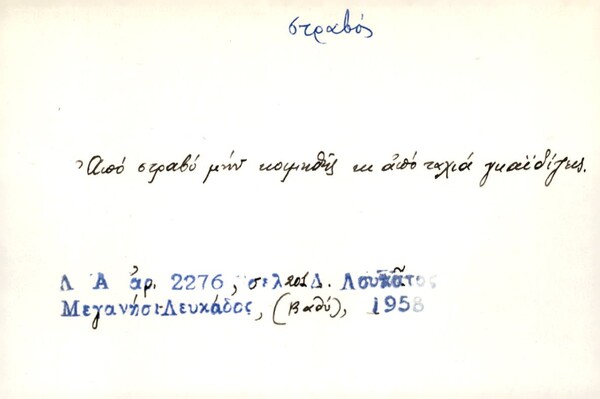 στραβός
Ἀπό στραβό μήν κοιμηθῇς κι ἀπό ταχιά γκαϊδίζεις.
Λ Α ἀρ. 2276, σελ 202 Δ. Λουκᾶτος
Μεγανήσι-Λευκάδος, (Βαθύ), 1958